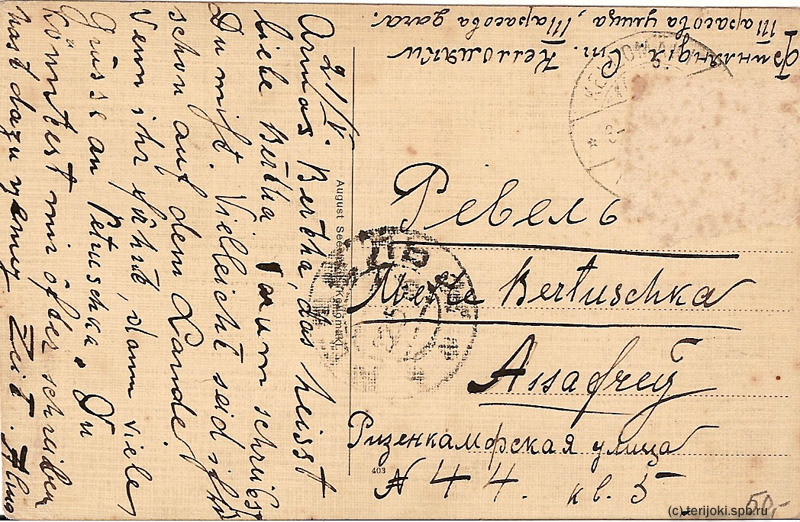 21/V.
Armas Bertha, das heisst
liebe Bertha! Warum schriebst
Du nicht. Vielleicht seid ihr
schon auf dem Lande?
Wenn ihr fährt, dann viele
Grüsse an Petruschka. Du
könntest mir öfter schreiben
hast dazu genug Zeit. Alma
Финляндiя Ст. Келломяки
Тарасова улица, Тарасова дача.
Ревель
Bertuschka
Assafrey
Ризенкампфская улица
№ 44. кв. 5
August
403
50,-
(c)terijoki.spb.ru